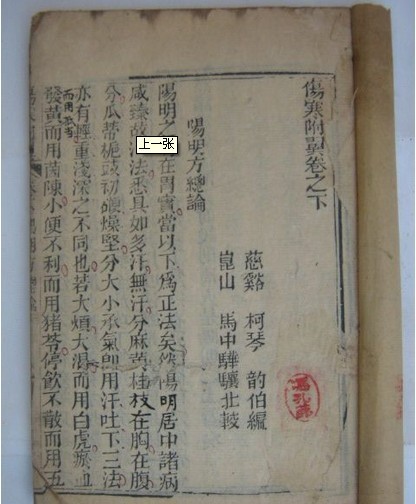 傷寒附翼卷之下
慈谿 柯琴 韵伯編
崑山 馬中驊驤北較
陽明方總論
陽明之在胃實當以下爲正法矣然陽明居中諸病
咸臻故法悉具如多汗無汗分麻黃桂枝在胸在腹
分瓜蒂梔豉初鞕燥堅分大小承氣即用汗吐下三法
亦有輕重淺深之不同也若大煩大渴而用白虎瘀血
發黃而用茵陳小便不利而用猪苓停飲不散而用五
上一张